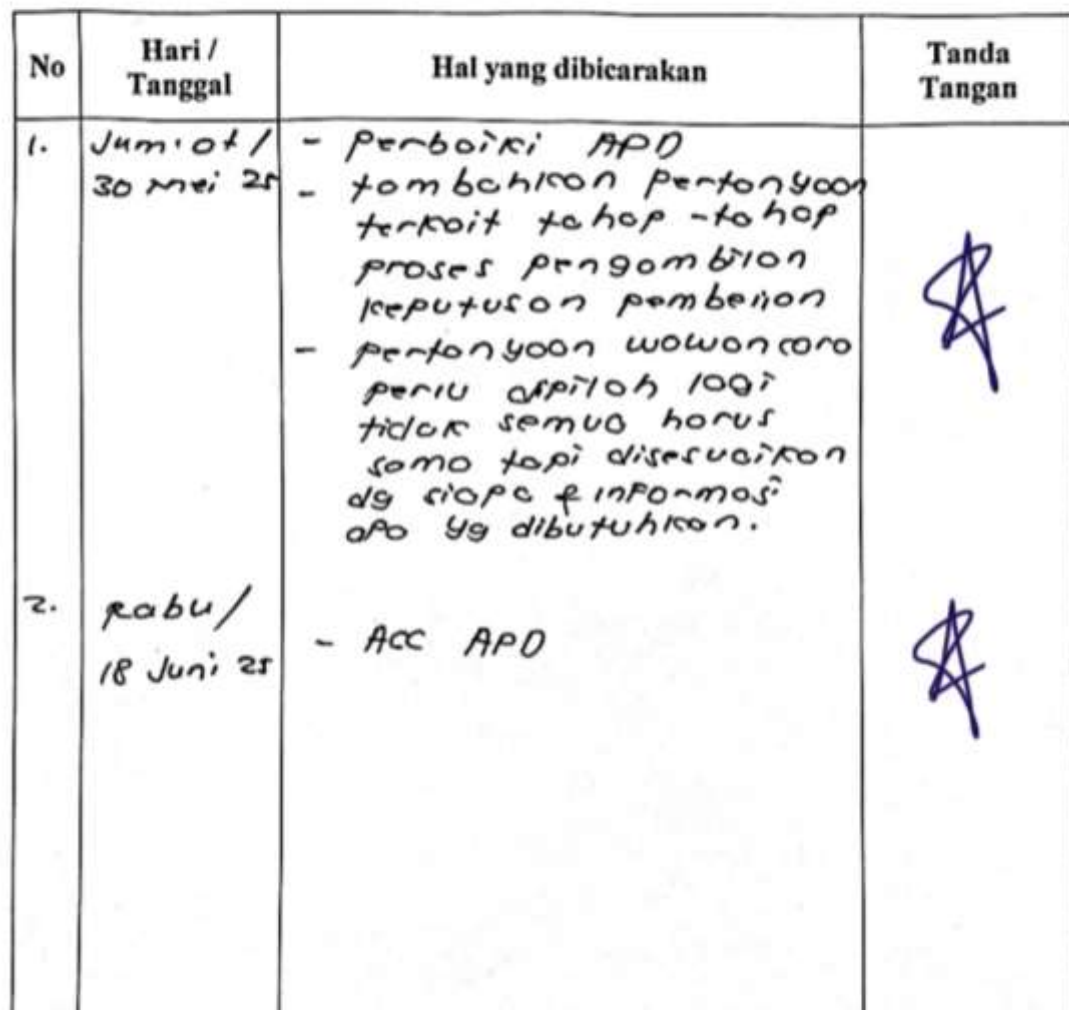 No
Hari /
Tanggal
Hal yang dibicarakan
Tanda
Tangan
1.
Jum'at /
30 Mei 25
- Perbaiki APD
- tambahkan pertanyaan
terkait tahap-tahap
proses pengambilan
keputusan pembelian
- pertanyaan wawancara
perlu dipilah lagi
tidak semua harus
sama tapi disesuaikan
dg siapa & informasi
apa yg dibutuhkan.
2.
Rabu /
18 Juni 25
- ACC APD